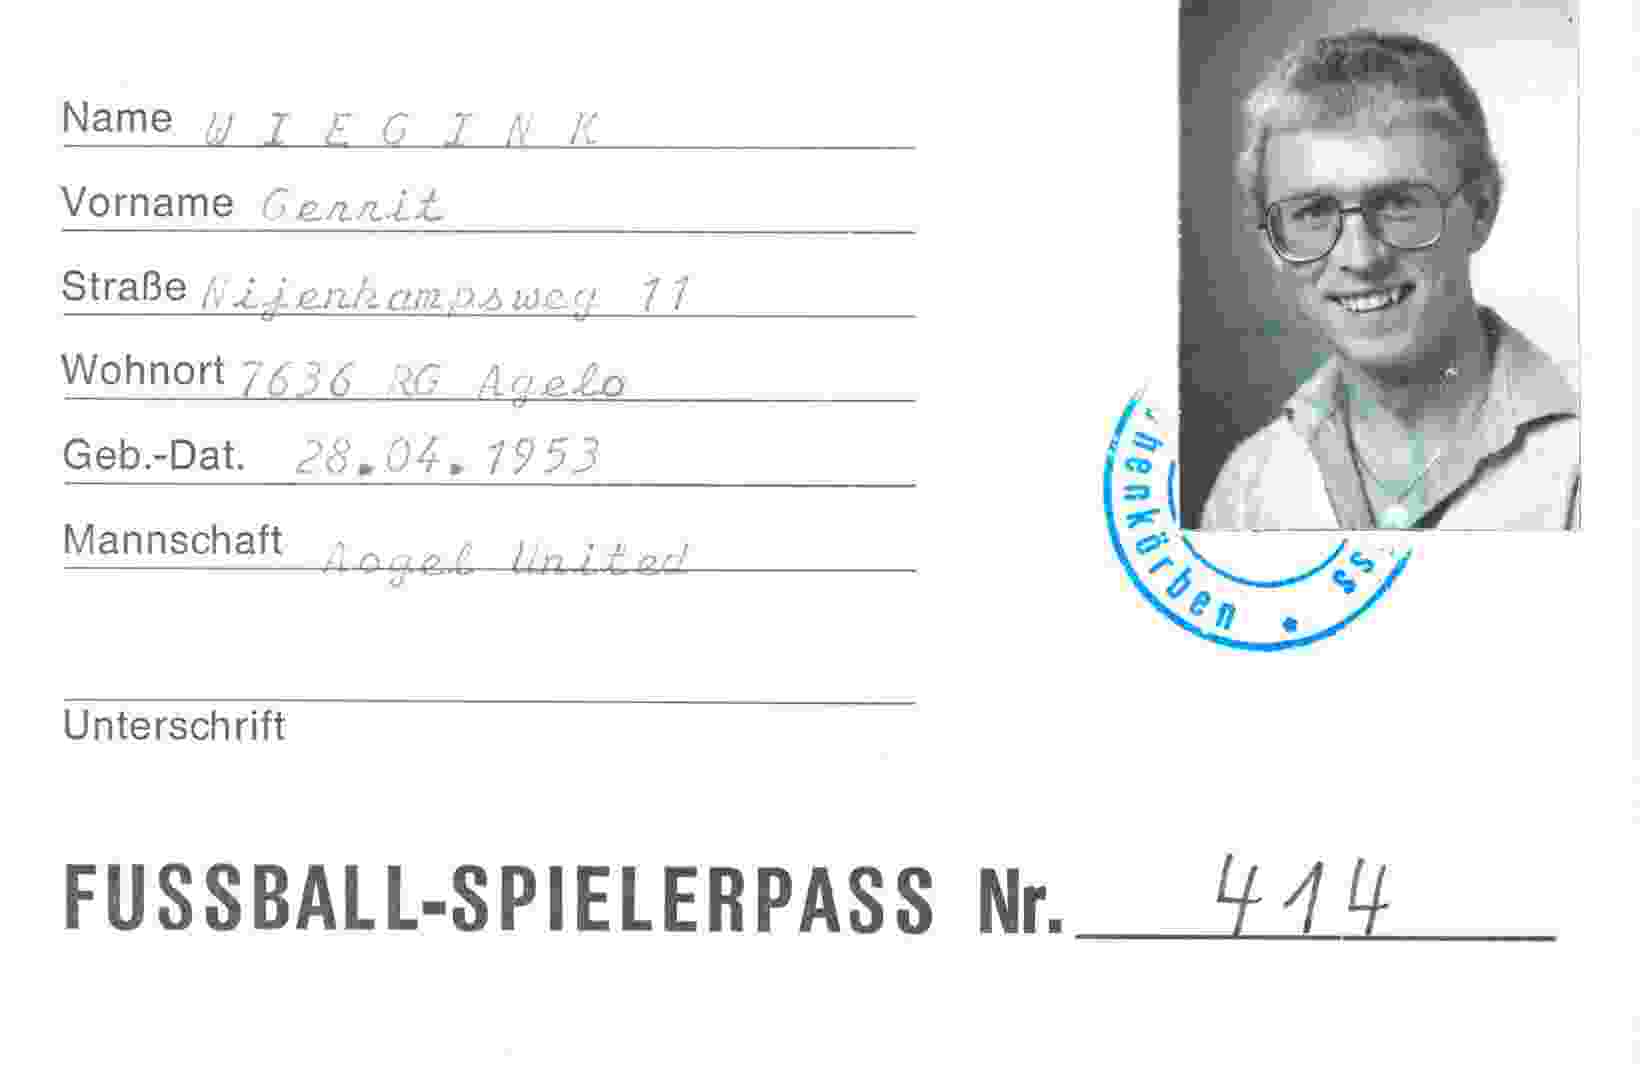 Name W I E G I N K
Vorname Gerrit
Straße Nijenkampsweg 11
Wohnort 7636 RG Agelo
Geb.-Dat. 28.04.1953
Mannschaft Aogel United
Unterschrift
henkörben * ss
FUSSBALL-SPIELERPASS Nr. 414